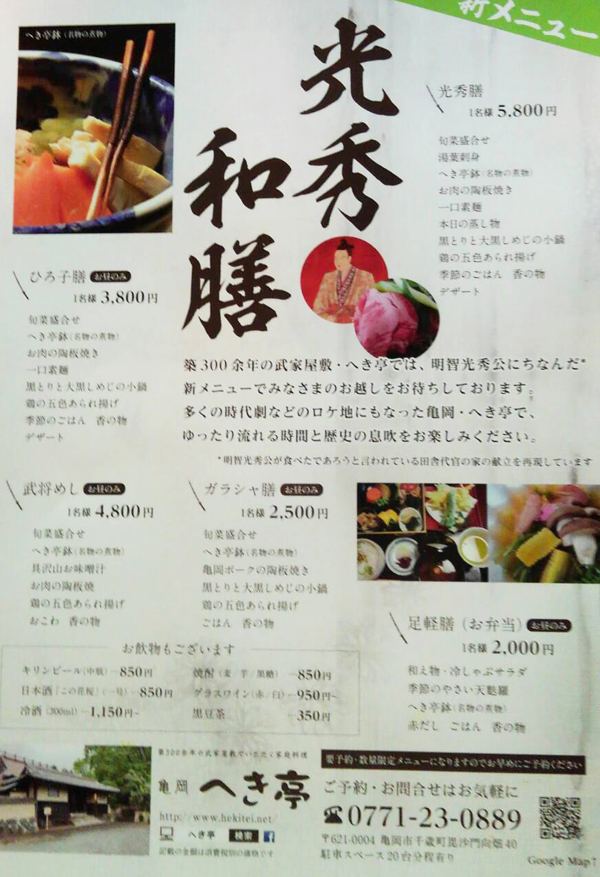 新メニュー
へき亭鉢(名物の煮物)
光秀
和膳
光秀膳
1名様 5,800円
旬菜盛合せ
湯葉刺身
へき亭鉢(名物の煮物)
お肉の陶板焼き
一口素麺
本日の蒸し物
黒とりと大黒しめじの小鍋
鶏の五色あられ揚げ
季節のごはん 香の物
デザート
ひろ子膳 お昼のみ
1名様 3,800円
旬菜盛合せ
へき亭鉢(名物の煮物)
お肉の陶板焼き
一口素麺
黒とりと大黒しめじの小鍋
鶏の五色あられ揚げ
季節のごはん 香の物
デザート
築300余年の武家屋敷・へき亭では、明智光秀公にちなんだ*
新メニューでみなさまのお越しをお待ちしております。
多くの時代劇などのロケ地にもなった亀岡・へき亭で、
ゆったり流れる時間と歴史の息吹をお楽しみください。
*明智光秀公が食べたであろうと言われている田舎代官の家の献立を再現しています
武将めし お昼のみ
1名様 4,800円
旬菜盛合せ
へき亭鉢(名物の煮物)
具沢山お味噌汁
お肉の陶板焼
鶏の五色あられ揚げ
おこわ 香の物
ガラシャ膳 お昼のみ
1名様 2,500円
旬菜盛合せ
へき亭鉢(名物の煮物)
亀岡ポークの陶板焼き
黒とりと大黒しめじの小鍋
鶏の五色あられ揚げ
ごはん 香の物
足軽膳(お弁当) お昼のみ
1名様 2,000円
和え物・冷しゃぶサラダ
季節のやさい天麩羅
へき亭鉢(名物の煮物)
赤だし ごはん 香の物
お飲物もございます
キリンビール(中瓶)―850円
日本酒「この花桜」(一号)―850円
冷酒(300ml)―1,150円~
焼酎(麦 芋 黒糖)―850円
グラスワイン(赤/白)―950円~
黒豆茶―350円
築300余年の武家屋敷でいただく家庭料理
亀岡 へき亭
http://www.hekitei.net/
へき亭 検索
記載の金額は消費税別の価格です
要予約・数量限定メニューになりますのでお早めにご予約ください
ご予約・お問合せはお気軽に
☎0771-23-0889
〒621-0004 亀岡市千歳町毘沙門向畑40
駐車スペース20台分程有り
Google Map↑